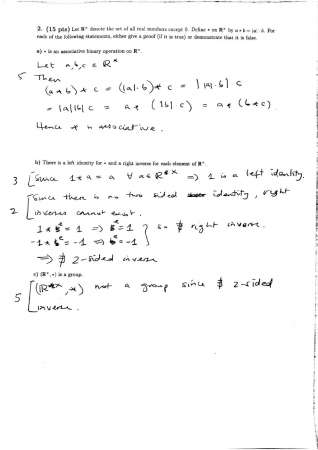 2. (15 pts) Let ℝ* denote the set of all real numbers except 0. Define * on ℝ* by a * b = |a| · b. For
each of the following statements, either give a proof (if it is true) or demonstrate that it is false.
a) * is an associative binary operation on ℝ*.
Let a, b, c ∈ ℝ*
5 Then
(a*b)*c = (|a|·b)*c = ||a|·b|·c
= |a||b|c = a * (|b|·c) = a * (b*c)
Hence * is associative.
b) There is a left identity for * and a right inverse for each element of ℝ*.
3 [Since 1*a = a ∀ a∈ℝ* ⇒ 1 is a left identity.
2 [Since there is no two sided identity, right
inverses cannot exist.
1*b = 1 ⇒ b = 1
-1*b = -1 ⇒ b = -1 } so ∄ right inverse.
⇒ ∄ 2-sided inverse
c) (ℝ*, *) is a group.
5 [(ℝ*, *) not a group since ∄ 2-sided
inverse.